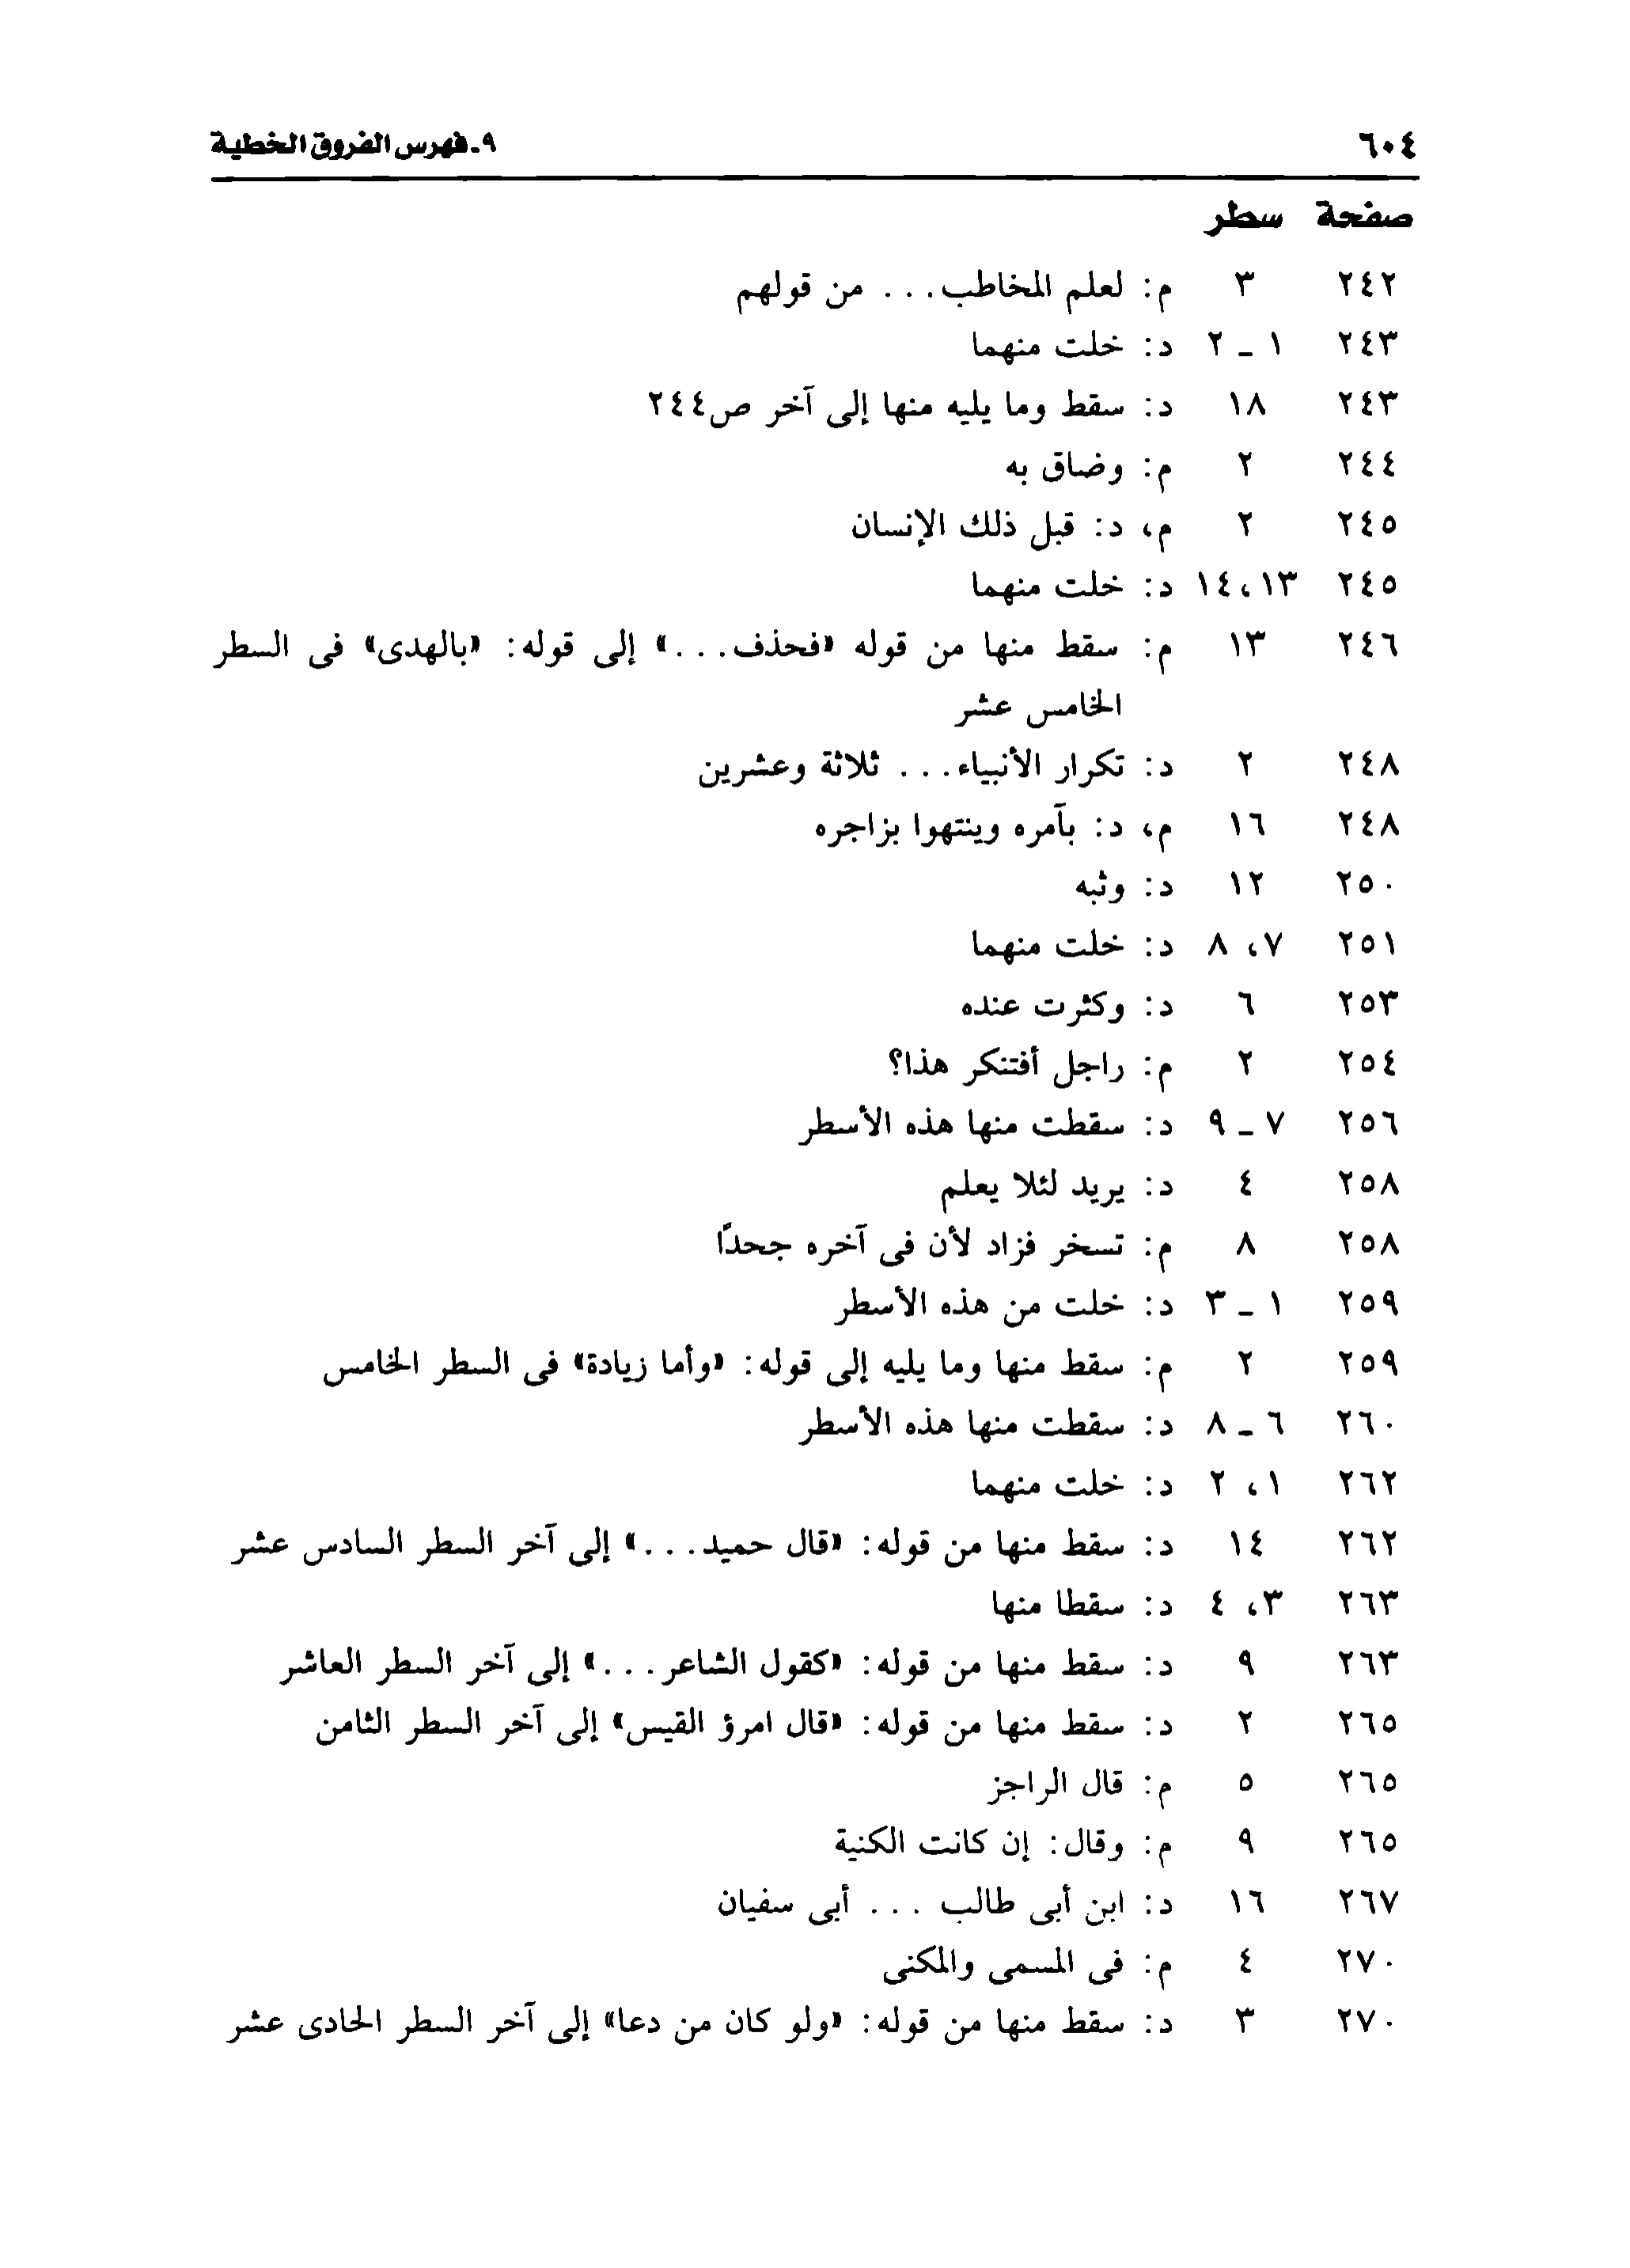 ٦٠٤ ٩ـ فهرس الفروق الخطية
صفحة سطر
٢٤٢ ٣ م: لعلم المخاطب... من قولهم
٢٤٣ ١ ـ ٢ د: خلت منهما
٢٤٣ ١٨ د: سقط وما يليه منها إلى آخر ص٢٤٤
٢٤٤ ٢ م: وضاق به
٢٤٥ ٢ م، د: قبل ذلك الإنسان
٢٤٥ ١٣،١٤ د: خلت منهما
٢٤٦ ١٣ م: سقط منها من قوله «فحذف...» إلى قوله: «بالهدى» فى السطر
الخامس عشر
٢٤٨ ٢ د: تكرار الأنبياء... ثلاثة وعشرين
٢٤٨ ١٦ م، د: بآمره وينتهوا بزاجره
٢٥٠ ١٢ د: وثبه
٢٥١ ٧، ٨ د: خلت منهما
٢٥٣ ٦ د: وكثرت عنده
٢٥٤ ٢ م: راجل أفتنكر هذا؟
٢٥٦ ٧ ـ ٩ د: سقطت منها هذه الأسطر
٢٥٨ ٤ د: يريد لئلا يعلم
٢٥٨ ٨ م: تسخر فزاد لأن فى آخره جحدًا
٢٥٩ ١ ـ ٣ د: خلت من هذه الأسطر
٢٥٩ ٢ م: سقط منها وما يليه إلى قوله: «وأما زيادة» فى السطر الخامس
٢٦٠ ٦ ـ ٨ د: سقطت منها هذه الأسطر
٢٦٢ ١، ٢ د: خلت منهما
٢٦٢ ١٤ د: سقط منها من قوله: «قال حميد...» إلى آخر السطر السادس عشر
٢٦٣ ٣، ٤ د: سقطا منها
٢٦٣ ٩ د: سقط منها من قوله: «كقول الشاعر...» إلى آخر السطر العاشر
٢٦٥ ٢ د: سقط منها من قوله: «قال امرؤ القيس» إلى آخر السطر الثامن
٢٦٥ ٥ م: قال الراجز
٢٦٥ ٩ م: وقال: إن كانت الكنية
٢٦٧ ١٦ د: ابن أبى طالب ... أبى سفيان
٢٧٠ ٤ م: فى المسمى والمكنى
٢٧٠ ٣ د: سقط منها من قوله: «ولو كان من دعا» إلى آخر السطر الحادى عشر